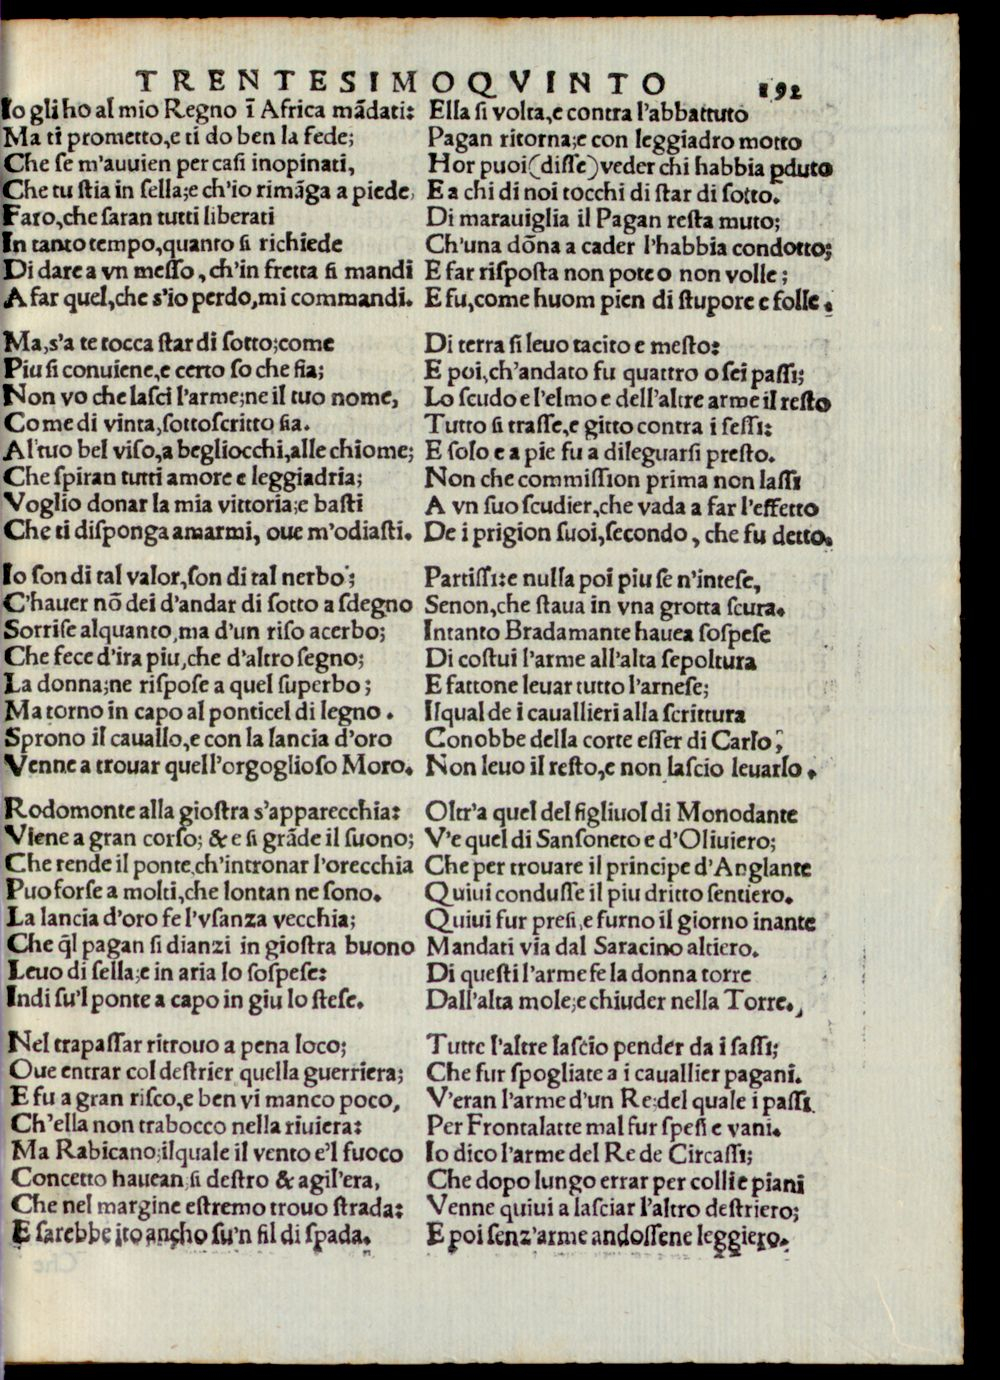 TRENTESIMOQVINTO 192
Io gli ho al mio Regno ī Africa mādati:
Ma ti prometto,e ti do ben la fede;
Che se m'auuien per casi inopinati,
Che tu stia in sella;e ch'io rimāga a piede,
Faro,che saran tutti liberati
In tanto tempo,quanto si richiede
Di dare a vn messo, ch'in fretta si mandi
A far quel,che s'io perdo,mi commandi.
Ma,s'a te tocca star di sotto;come
Piu si conuiene,e certo so che fia;
Non vo che lasci l'arme;ne il tuo nome,
Come di vinta,sottoscritto sia.
Al tuo bel viso,a begliocchi,alle chiome;
Che spiran tutti amore e leggiadria;
Voglio donar la mia vittoria;e basti
Che ti disponga amarmi, oue m'odiasti.
Io son di tal valor,son di tal nerbo;
C'hauer nō dei d'andar di sotto a sdegno
Sorrise alquanto,ma d'un riso acerbo;
Che fece d'ira piu,che d'altro segno;
La donna;ne rispose a quel superbo;
Ma torno in capo al ponticel di legno.
Sprono il cauallo,e con la lancia d'oro
Venne a trouar quell'orgoglioso Moro.
Rodomonte alla giostra s'apparecchia:
Viene a gran corso; & e si grāde il suono;
Che rende il ponte,ch'intronar l'orecchia
Puo forse a molti,che lontan ne sono.
La lancia d'oro fe l'vsanza vecchia;
Che q̄l pagan si dianzi in giostra buono
Leuo di sella;e in aria lo sospese:
Indi su'l ponte a capo in giu lo stese.
Nel trapassar ritrouo a pena loco;
Oue entrar col destrier quella guerriera;
E fu a gran risco,e ben vi manco poco,
Ch'ella non trabocco nella riuiera:
Ma Rabicano;ilquale il vento e'l fuoco
Concetto hauean;si destro & agil'era,
Che nel margine estremo trouo strada:
E sarebbe ito ancho su'n fil di spada.
Ella si volta,e contra l'abbattuto
Pagan ritorna;e con leggiadro motto
Hor puoi(disse)veder chi habbia ꝑduto
E a chi di noi tocchi di star di sotto.
Di marauiglia il Pagan resta muto;
Ch'una dōna a cader l'habbia condotto;
E far risposta non pote o non volle;
E fu,come huom pien di stupore e folle.
Di terra si leuo tacito e mesto:
E poi,ch'andato fu quattro o sei passi;
Lo scudo e l'elmo e dell'altre arme il resto
Tutto si trasse,e gitto contra i sessi:
E solo e a pie fu a dileguarsi presto.
Non che commission prima non lassi
A vn suo scudier,che vada a far l'effetto
De i prigion suoi,secondo, che fu detto.
Partissi:e nulla poi piu se n'intese,
Senon,che staua in vna grotta scura.
Intanto Bradamante hauea sospese
Di costui l'arme all'alta sepoltura
E fattone leuar tutto l'arnese;
Ilqual de i cauallieri alla scrittura
Conobbe della corte esser di Carlo;
Non leuo il resto,e non lascio leuarlo.
Oltr'a quel del figliuol di Monodante
V'e quel di Sansoneto e d'Oliuiero;
Che per trouare il principe d'Anglante
Quiui condusse il piu dritto sentiero.
Quiui fur presi,e furno il giorno inante
Mandati via dal Saracino altiero.
Di questi l'arme fe la donna torre
Dall'alta mole;e chiuder nella Torre.
Tutte l'altre lascio pender da i sassi;
Che fur spogliate a i cauallier pagani.
V'eran l'arme d'un Re;del quale i passi
Per Frontalatte mal fur spesi e vani.
Io dico l'arme del Re de Circassi;
Che dopo lungo errar per colli e piani
Venne quiui a lasciar l'altro destriero;
E poi senz'arme andossene leggiero.